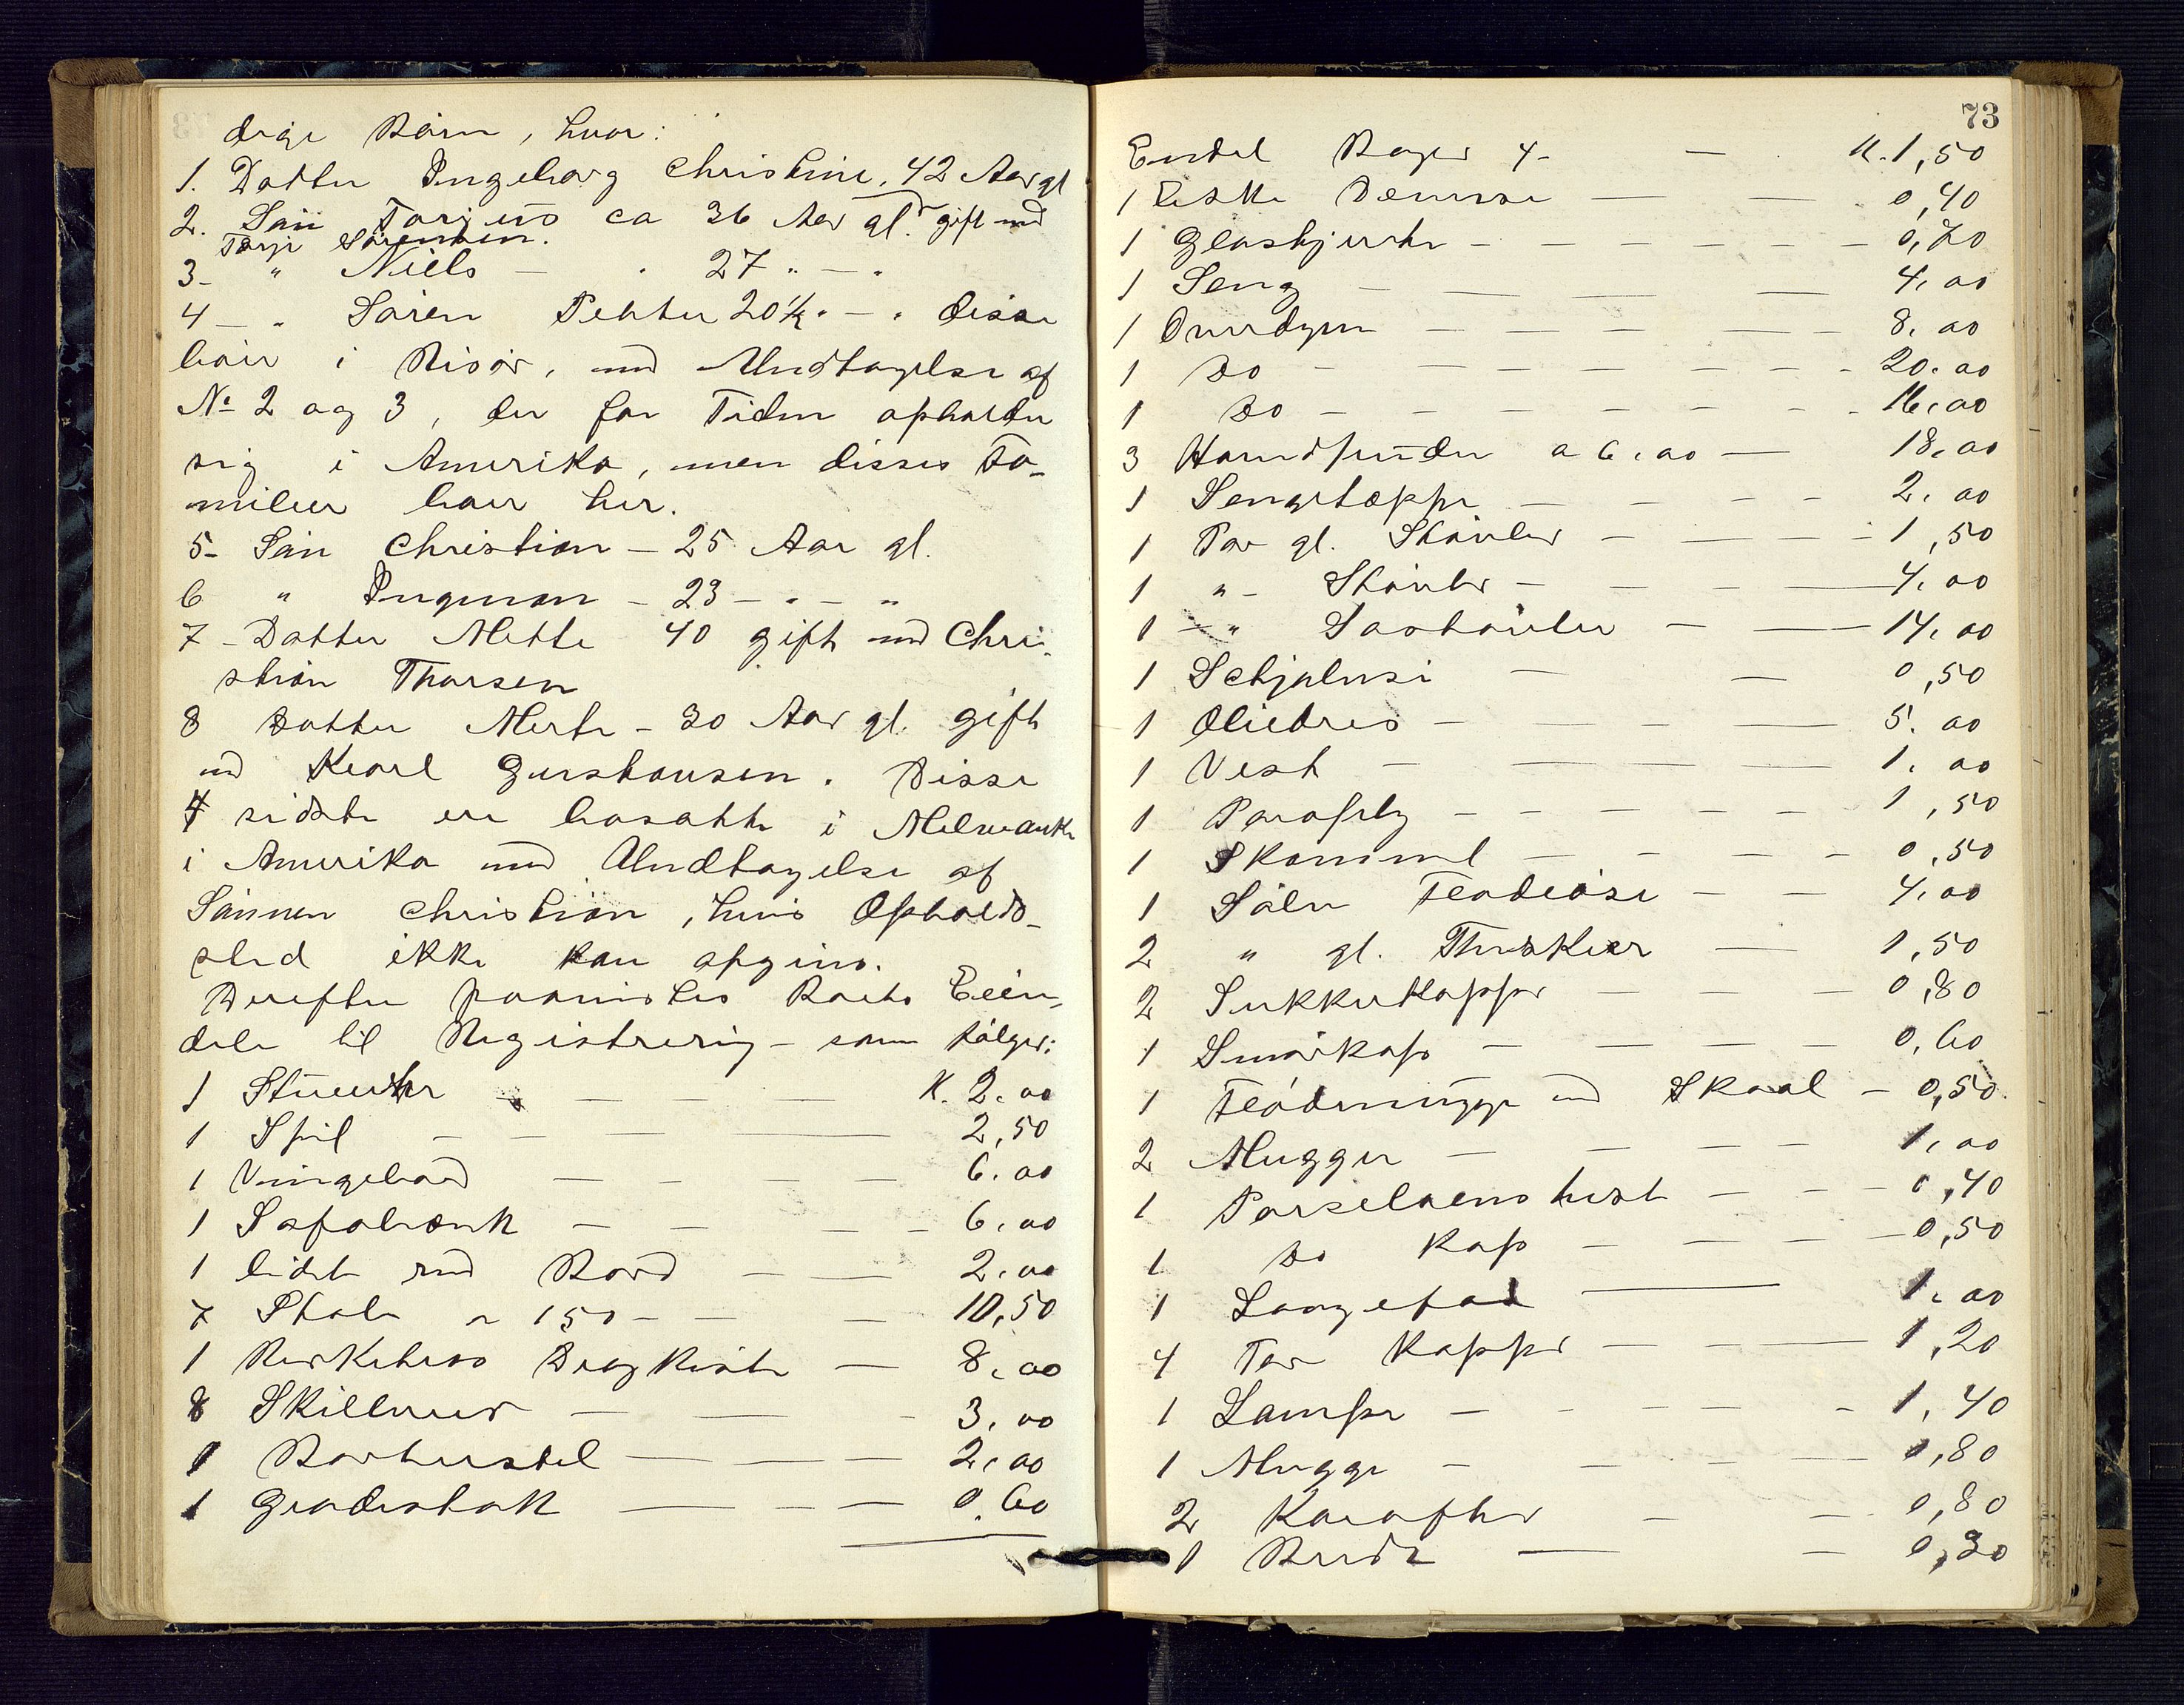 dige Børn, hvor:
1. Datter Ingeborg Christine, 42 Aar gl
gift med
2. Søn Torjens ca 36 Aar gl.
Torje Sørensen.
3- " Niels - " 27 " - "
4 - " Søren Petter 20½ " - " disse
boer i Risør, med Undtagelse af
No 2 og 3, der for Tiden opholder
sig i Amerika, men disses Fa-
milier boer her.
5- Søn Christian - 25 Aar gl.
6 " Ingeman - 23 - " - "
7 - Datter Mette 40 gift med Chri-
stian Thorsen
8 Datter Merte - 30 Aar gl. gift
med Karl Gershausen. Disse
4 sidste er bosatte i Milwauke
i Amerika med Undtagelse af
Sønnen Christian, hvis Opholds-
sted ikke kan opgives.
Derefter paavistes Boets Eien-
dele til Registrering - som følger:
1 Stueuhr K. 2.00
1 Speil 2,50
1 Vingebord 6.00
1 Safabænk 6,00
1 lidet rnd Bord 2.00
7 Stole a 150 - 10,50
1 Birketræs Dragkiste - 8,00
8 Skillerier 3,00
1 Barberstel 2,00
1 Gradestok 0.60
73
Endel Bøger 4- K. 1,50
1 Eske Demse 0,40
1 Glaskjerte 0,70
1 Seng 4,00
1 Overdyne 8.00
1 Do 20.00
1 Do 16,00
3 Hovedpuder a 6.00 18,00
1 Sengetæppe 2.00
1 Par gl. Støvler 1,50
1 " - Støvler 4,00
1 - " Søstøvler 14,00
1 0,50
1 Oliedres 5.00
1 Vest 1.00
1 Paraply 1,50
1 Skammel 0,50
1 Sølv Flødeøse 4,00
2 " gl. Theskeer 1,50
2 Sukkerkopper 0,80
1 Smørkop 0,60
1 Flødemugge med Skaal - 0,50
2 Mugger 1,00
1 Porselaens hest 0,40
1 Do Kop 0,50
1 Langefad 1,00
4 Par Kopper 1,20
1 Lampe 1,40
1 Mugge 0,80
2 Karafler 0,80
1 Bret 0,30